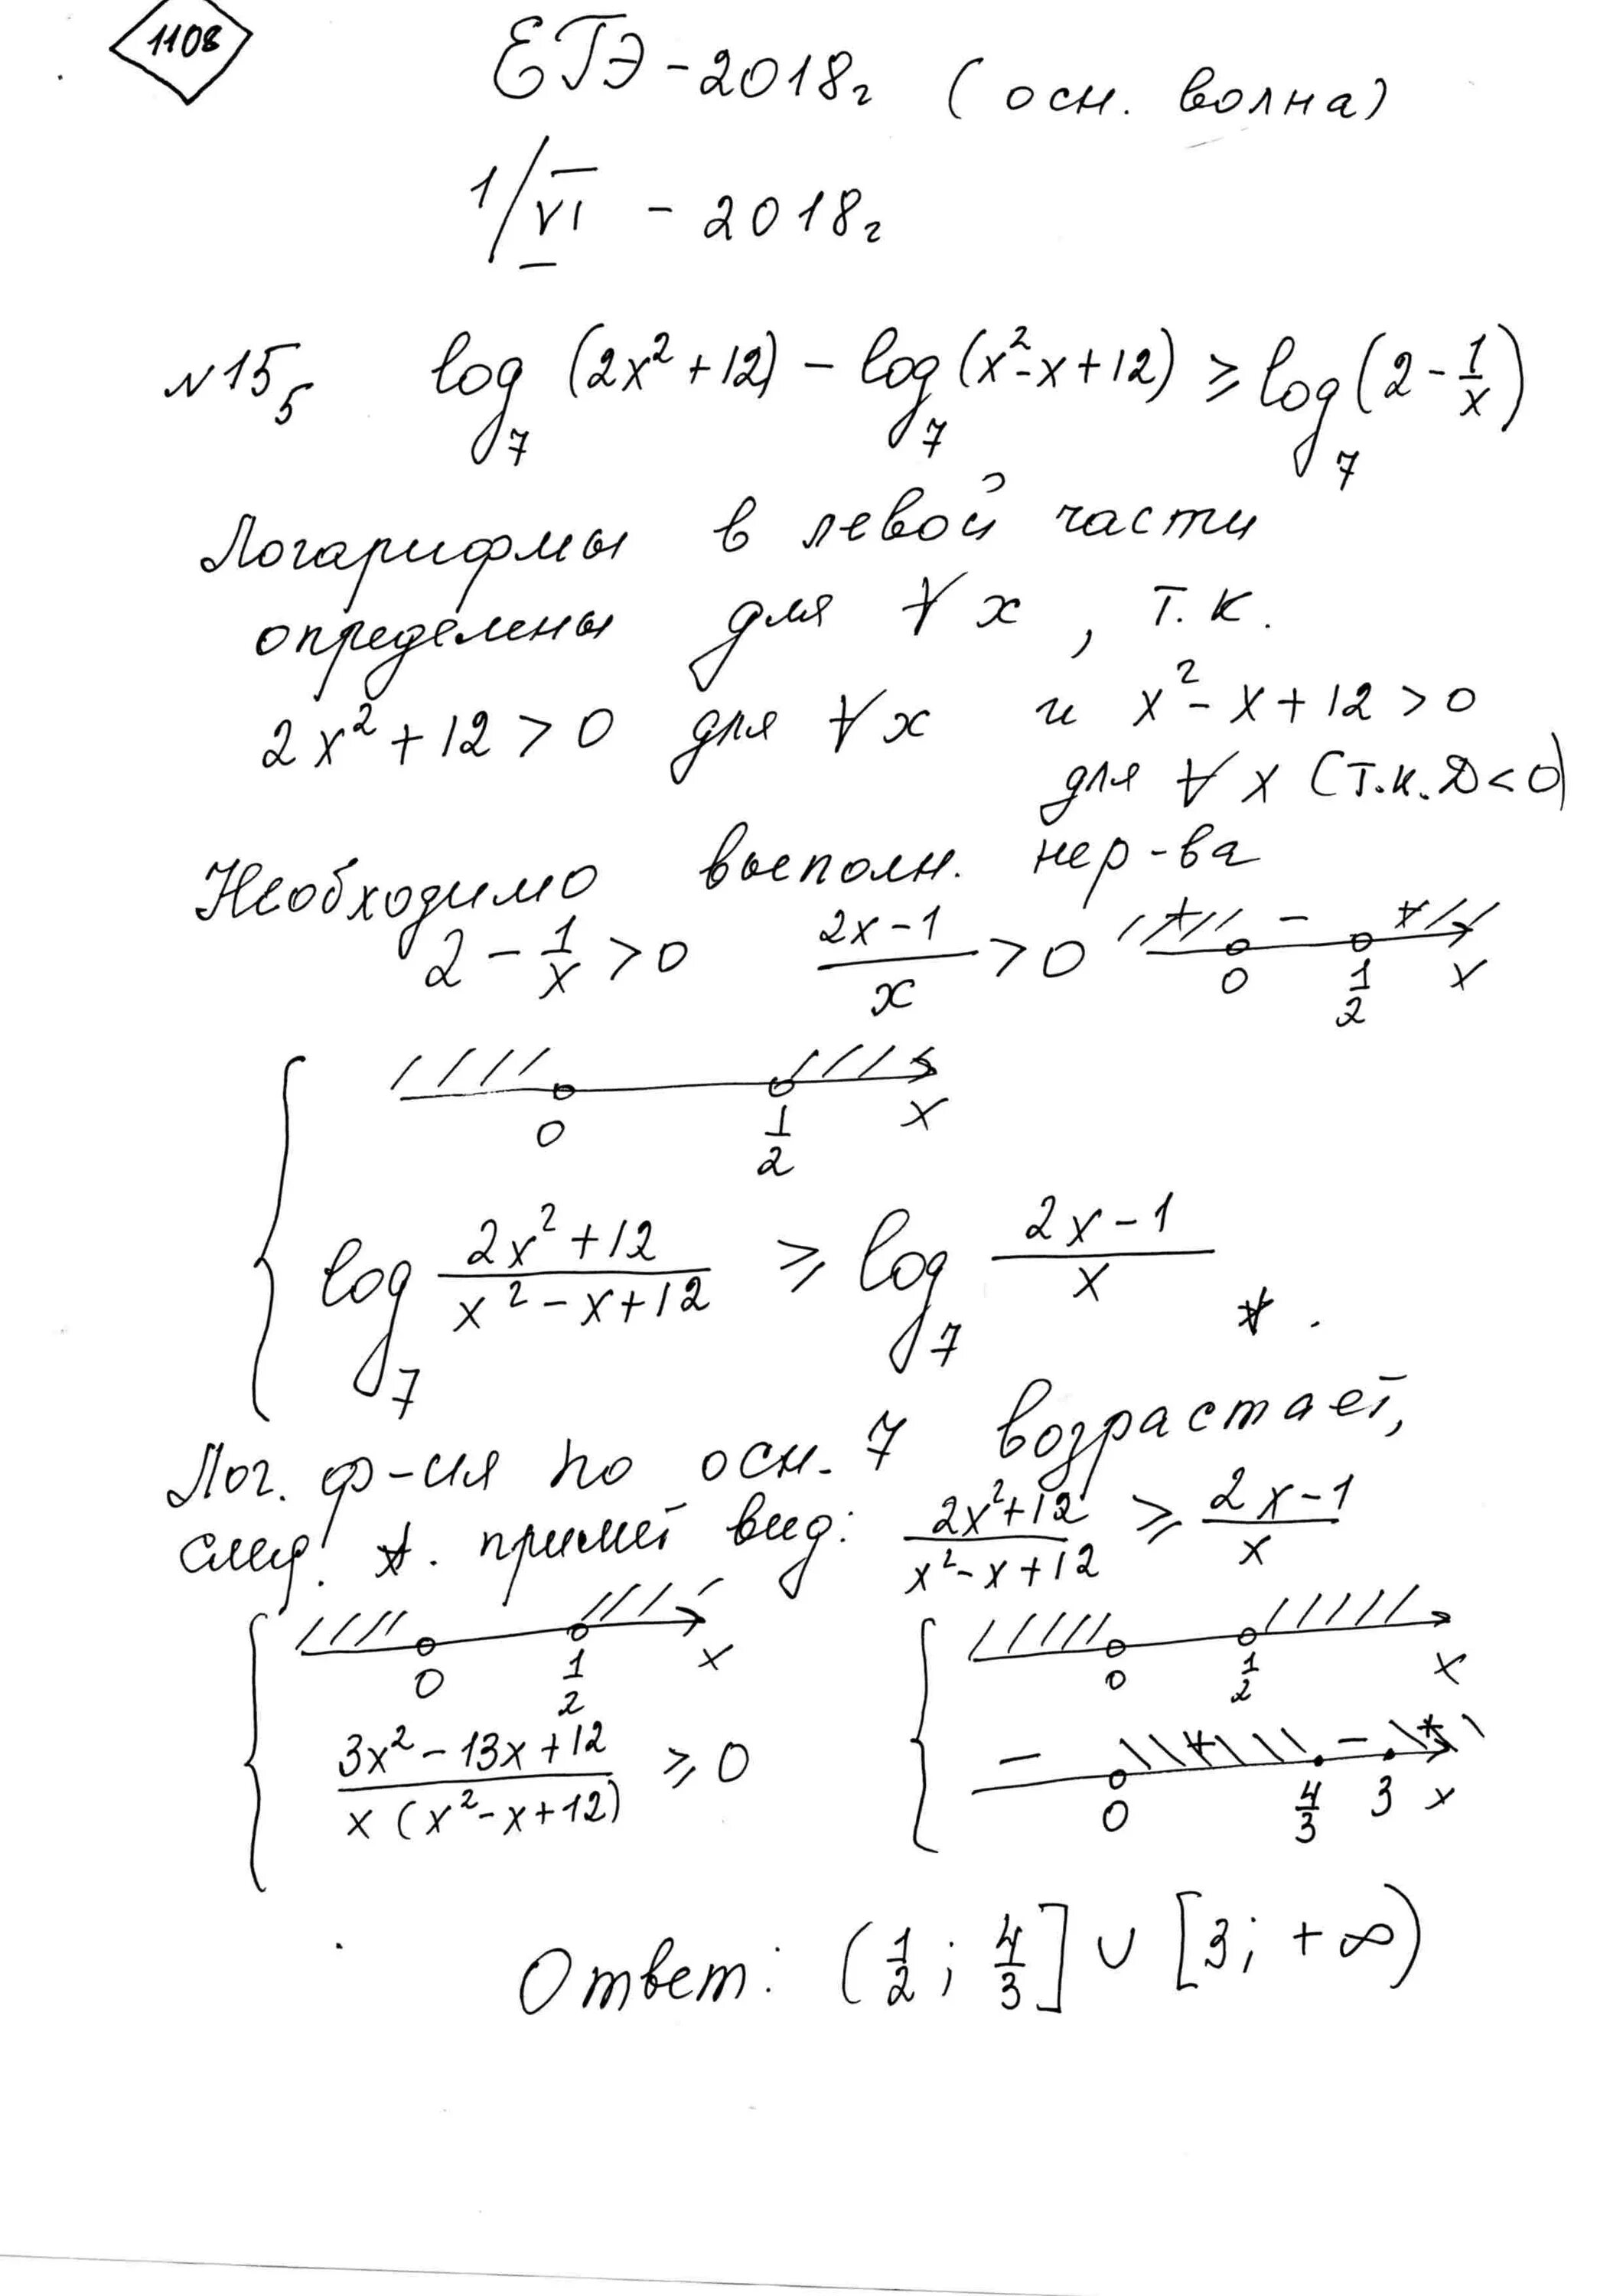 1108
ЕГЭ - 2018г (осн. волна)
1/VI - 2018г
№15₅ log₇(2x²+12) - log₇(x²-x+12) ≥ log₇(2 - 1/x)
Логарифмы в левой части
определены для ∀ x , т.к.
2x²+12 > 0 для ∀ x и x²-x+12 > 0
для ∀ x (т.к. D<0)
Необходимо выполн. нер-ва
2 - 1/x > 0 (2x-1)/x > 0 + - + 0 1/2 x
0 1/2 x
log₇ (2x²+12)/(x²-x+12) ≥ log₇ (2x-1)/x * .
Лог. ф-ия по осн. 7 возрастает,
след. *. примет вид: (2x²+12)/(x²-x+12) ≥ (2x-1)/x
0 1/2 x 0 1/2 x
(3x²-13x+12)/(x(x²-x+12)) ≥ 0 - + - + 0 4/3 3 x
Ответ: (1/2; 4/3] ∪ [3; +∞)